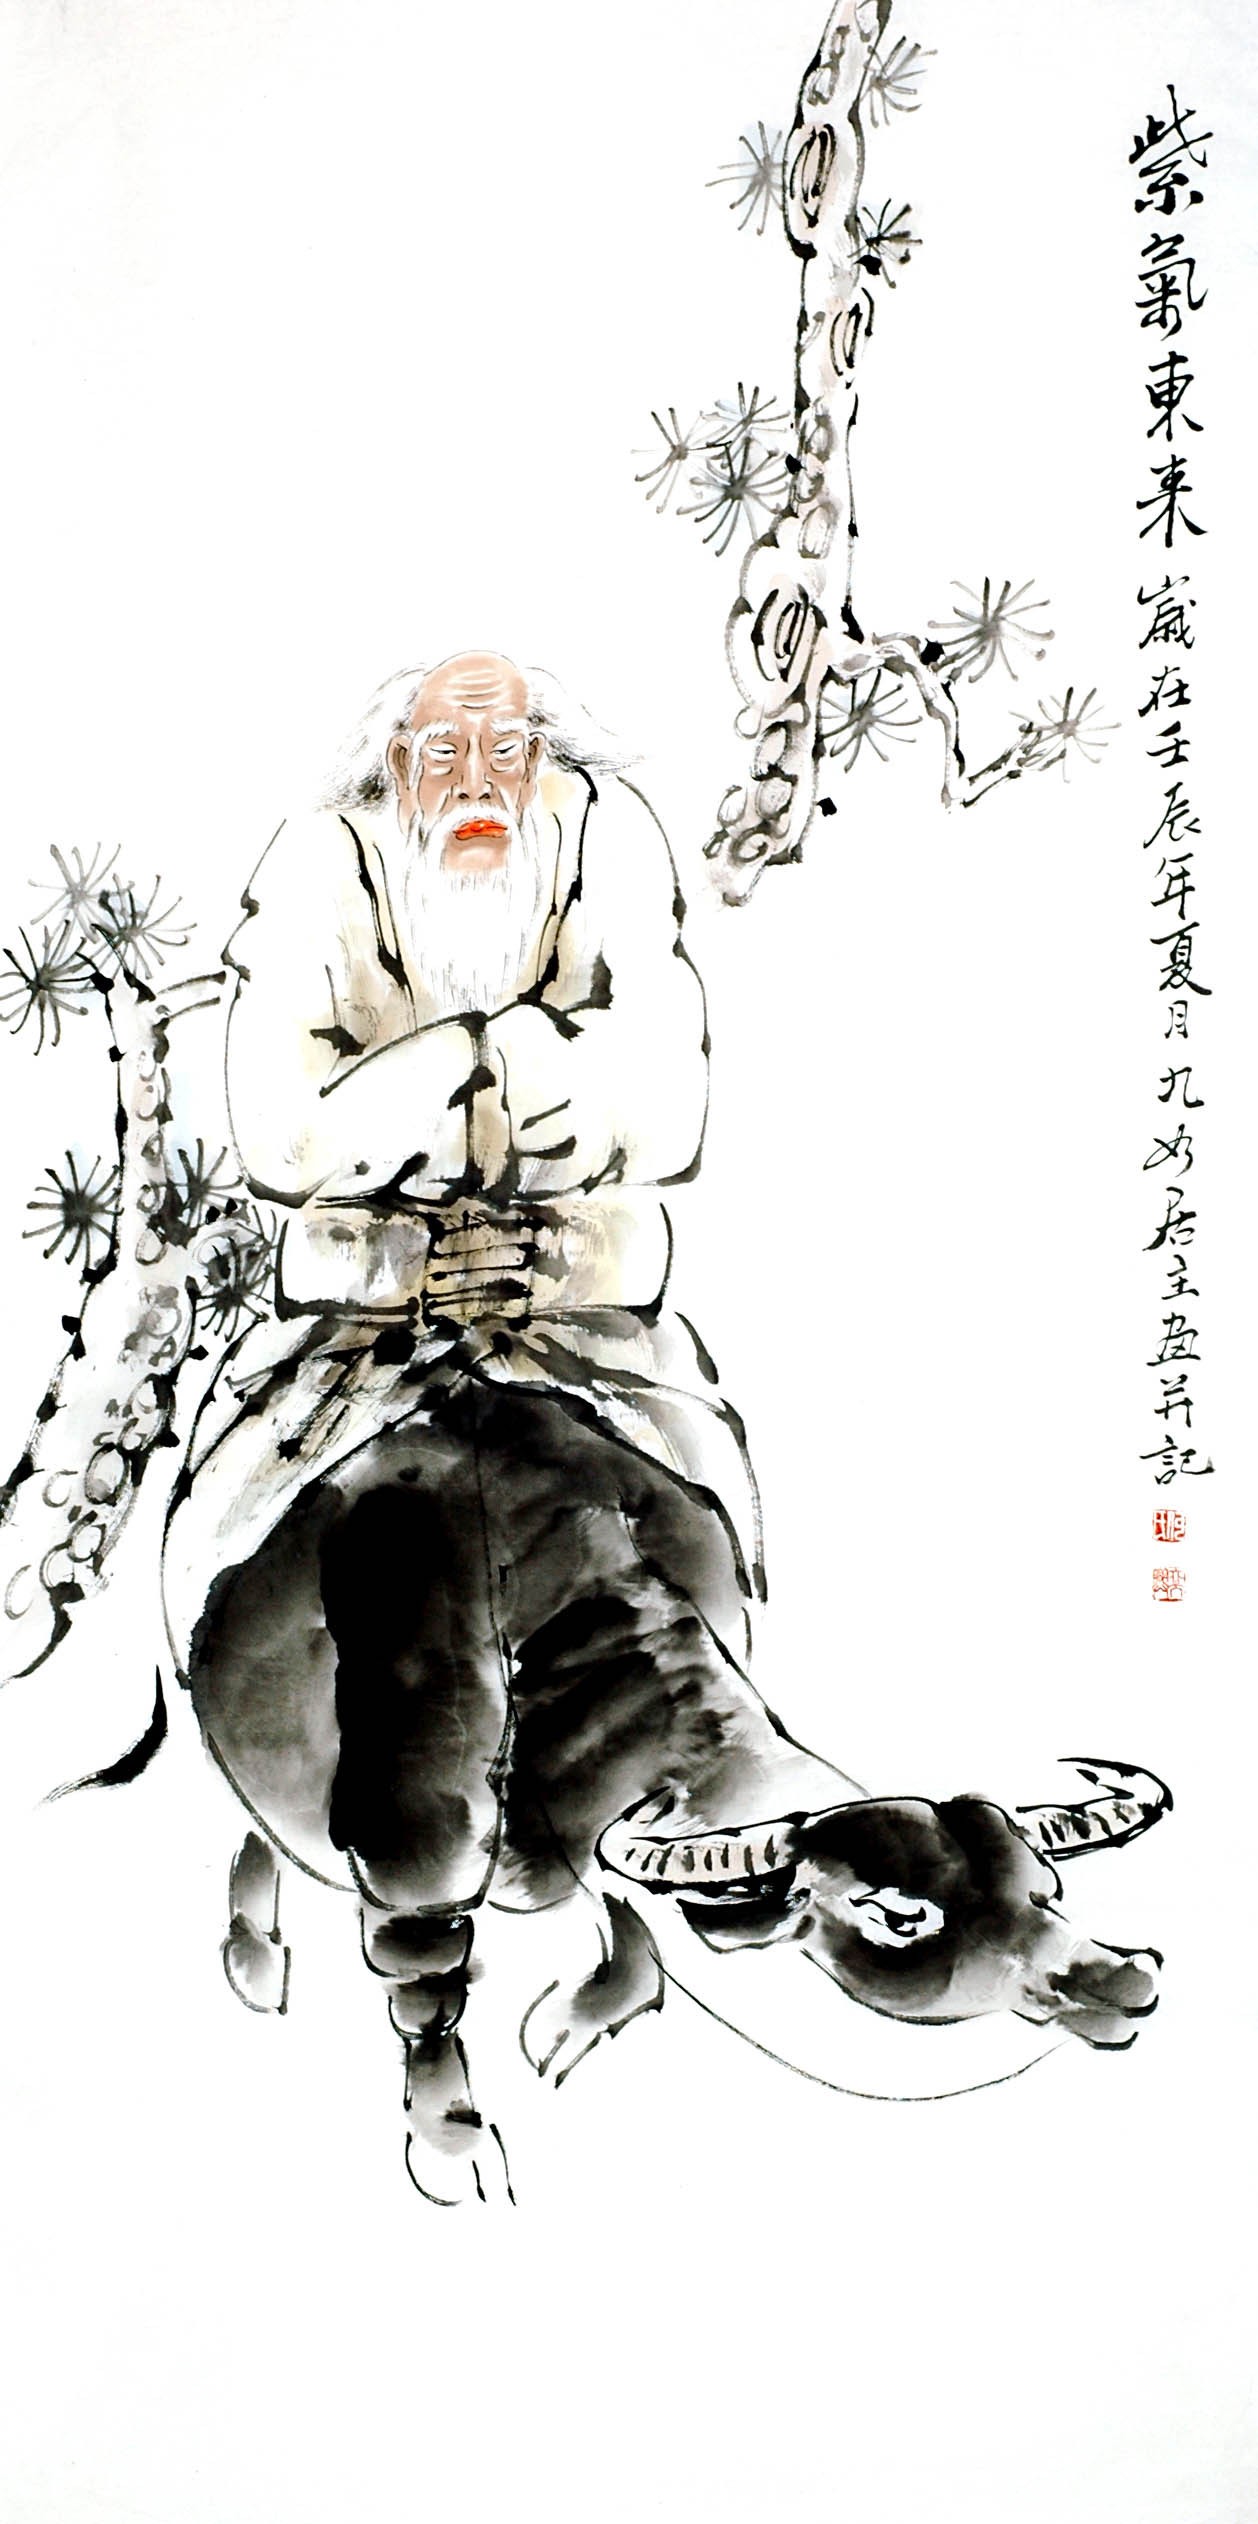 紫氣東来 歲在壬辰年夏月 九如居主画并記